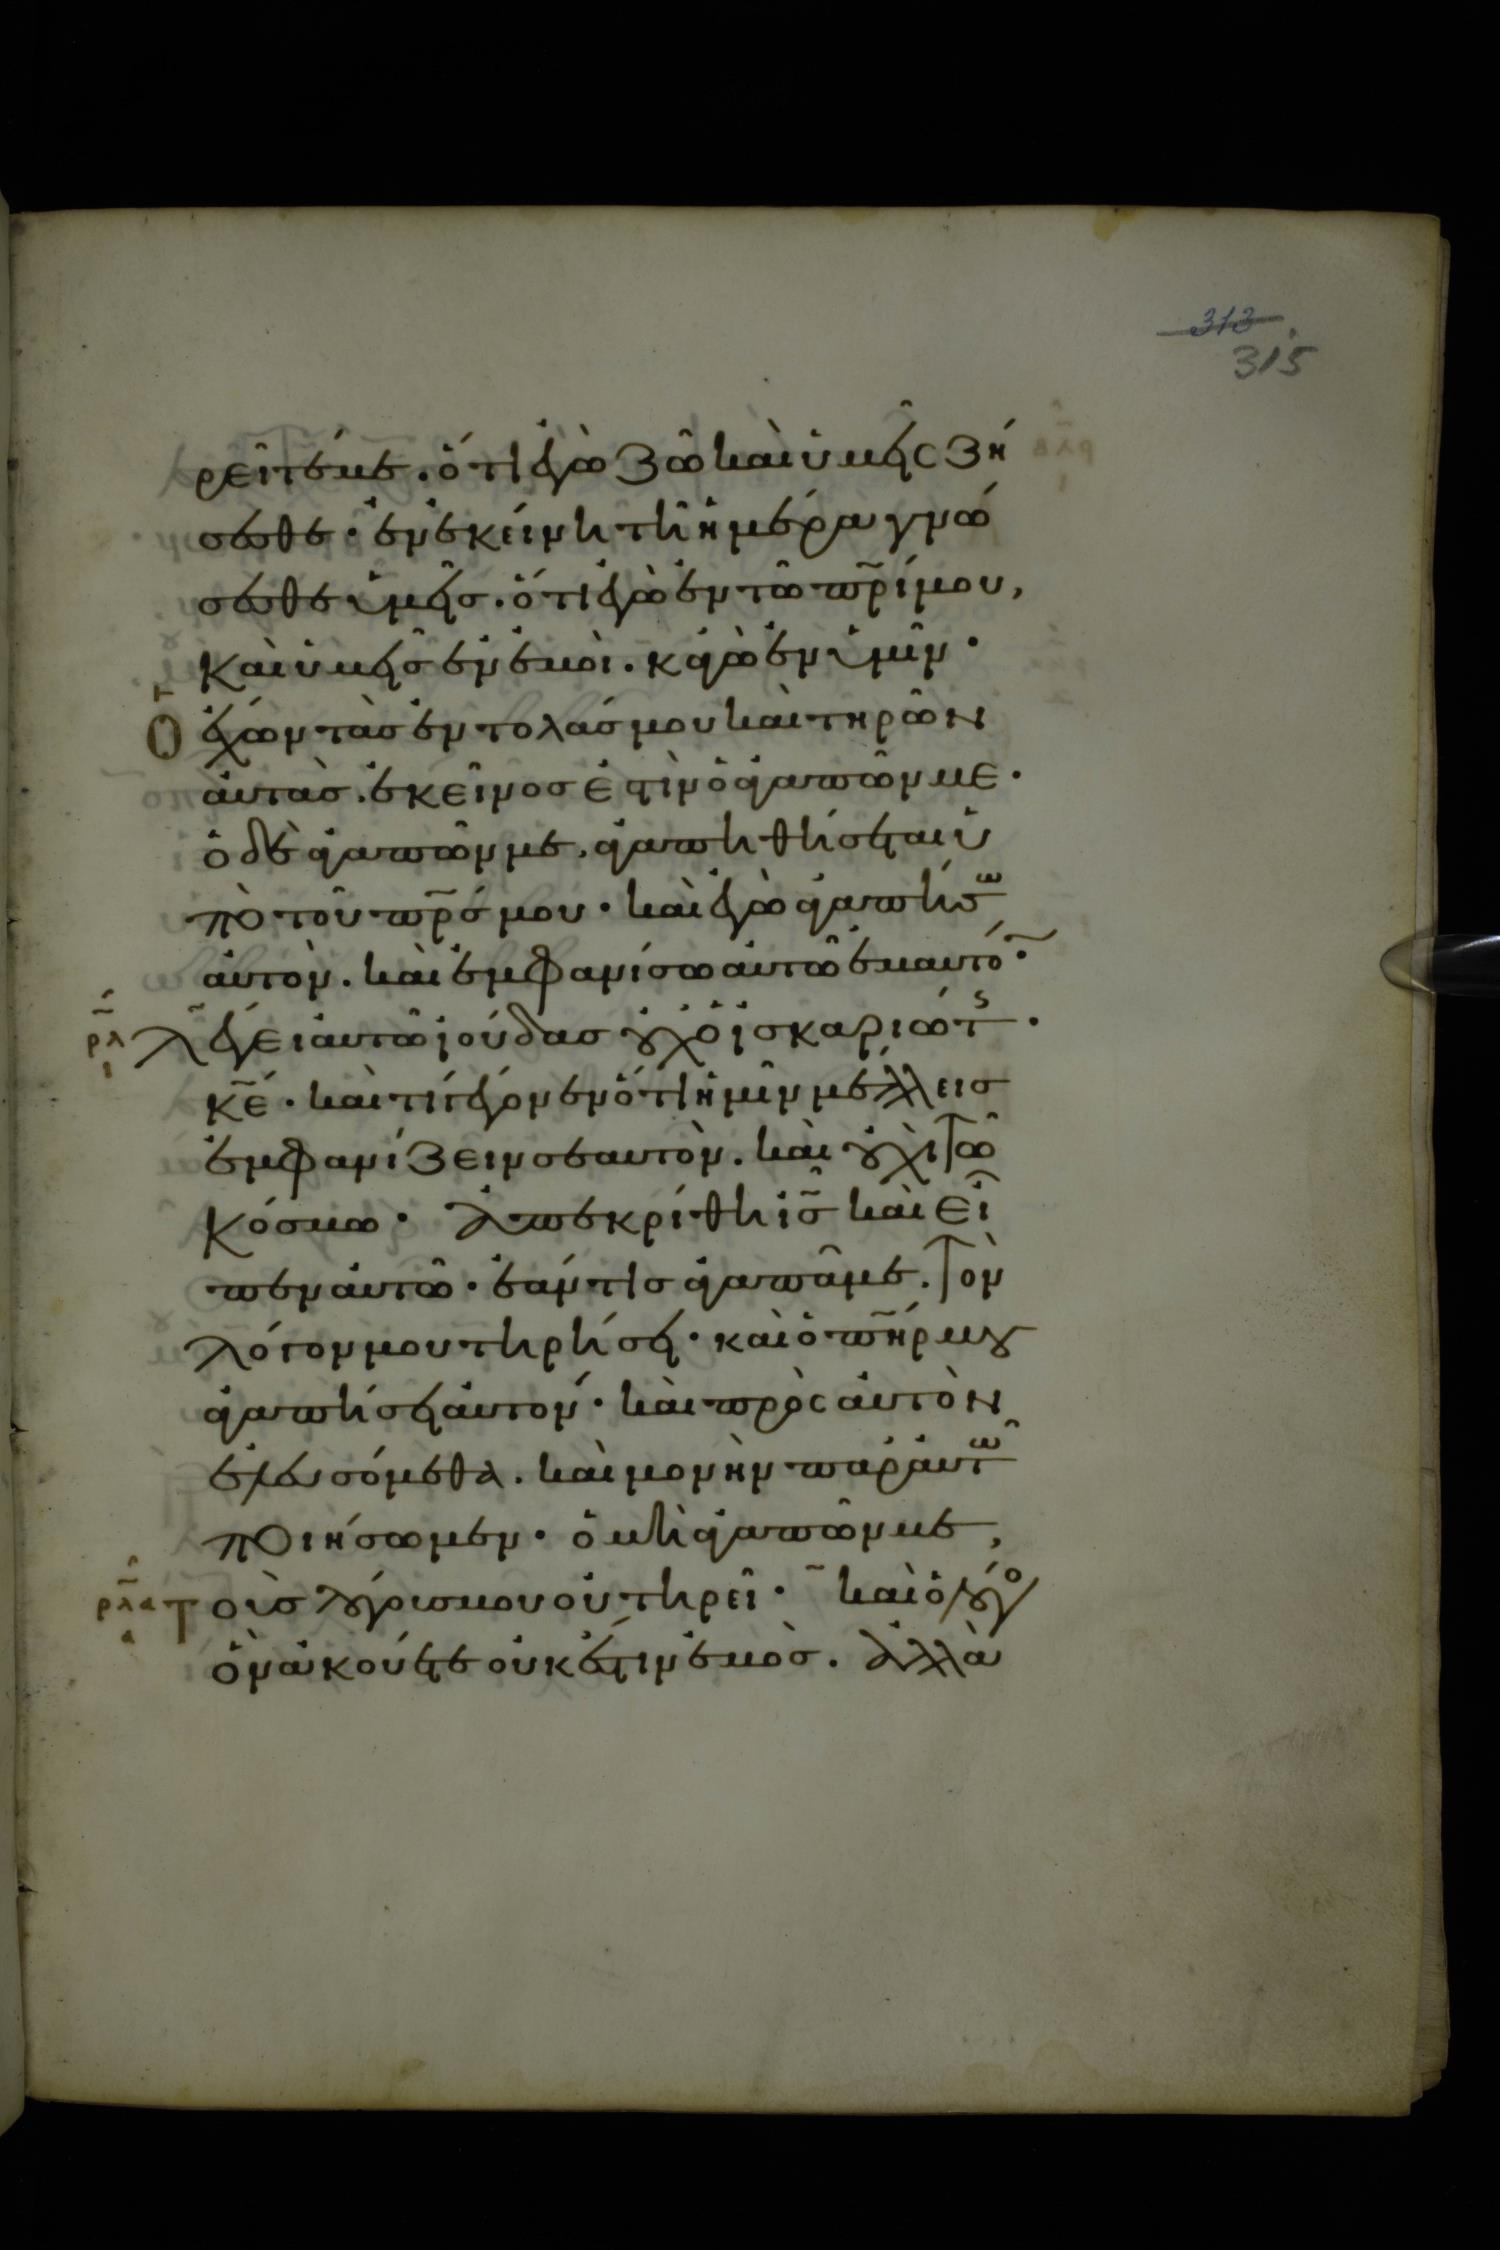 313
315
ρεῖτέ με. ὅτι ἐγὼ ζῶ καὶ ὑμεῖς ζή
σεσθε· ἐν ἐκείνη τῆ ἡμέρα γνώ
σεσθε ὑμεῖς. ὅτι ἐγὼ ἐν τῶ πρ̅ί μου,
καὶ ὑμεῖς ἐν ἐμοὶ. κἀγὼ ἐν ὑμῖν·
Ὁ ἔχων τὰς ἐντολάς μου καὶ τηρῶν
αὐτὰς. ἐκεῖνος ἐστὶν ὁ ἀγαπῶν με·
ὁ δὲ ἀγαπῶν με, ἀγαπηθήσεται ὑ
πὸ τοῦ πρ̅ς μου· καὶ ἐγὼ ἀγαπήσω
αὐτον. καὶ ἐμφανίσω αὐτῶ ἐμαυτό̅·
ρλ
ι
λέγει αὐτῶ ἰούδας οὐχ ὁ ἰσκαριώτς·
κ̅ε· καὶ τί γέγονεν ὅτι ἡμῖν μέλλεις
ἐμφανίζειν σεαυτὸν. καὶ οὐχὶ τῶ
κόσμω· ἀπεκρίθη ις̅ καὶ εἶ
πεν αὐτῶ· ἐάν τις ἀγαπᾶ με. τὸν
λόγον μου τηρήσει· καὶ ὁ πη̅ρ μου
ἀγαπήσει αὐτον· καὶ πρὸς αὐτὸν
ἐλευσόμεθα. καὶ μονὴν παρ' αὐτῶ
ποιήσωμεν· ὁ μὴ ἀγαπῶν με,
ρλα
α
τοὺς λόγους μου οὐ τηρεῖ· καὶ ὁ λόγο
ὃν ἀκούετε οὐκ ἔστιν ἐμὸς. ἀλλὰ